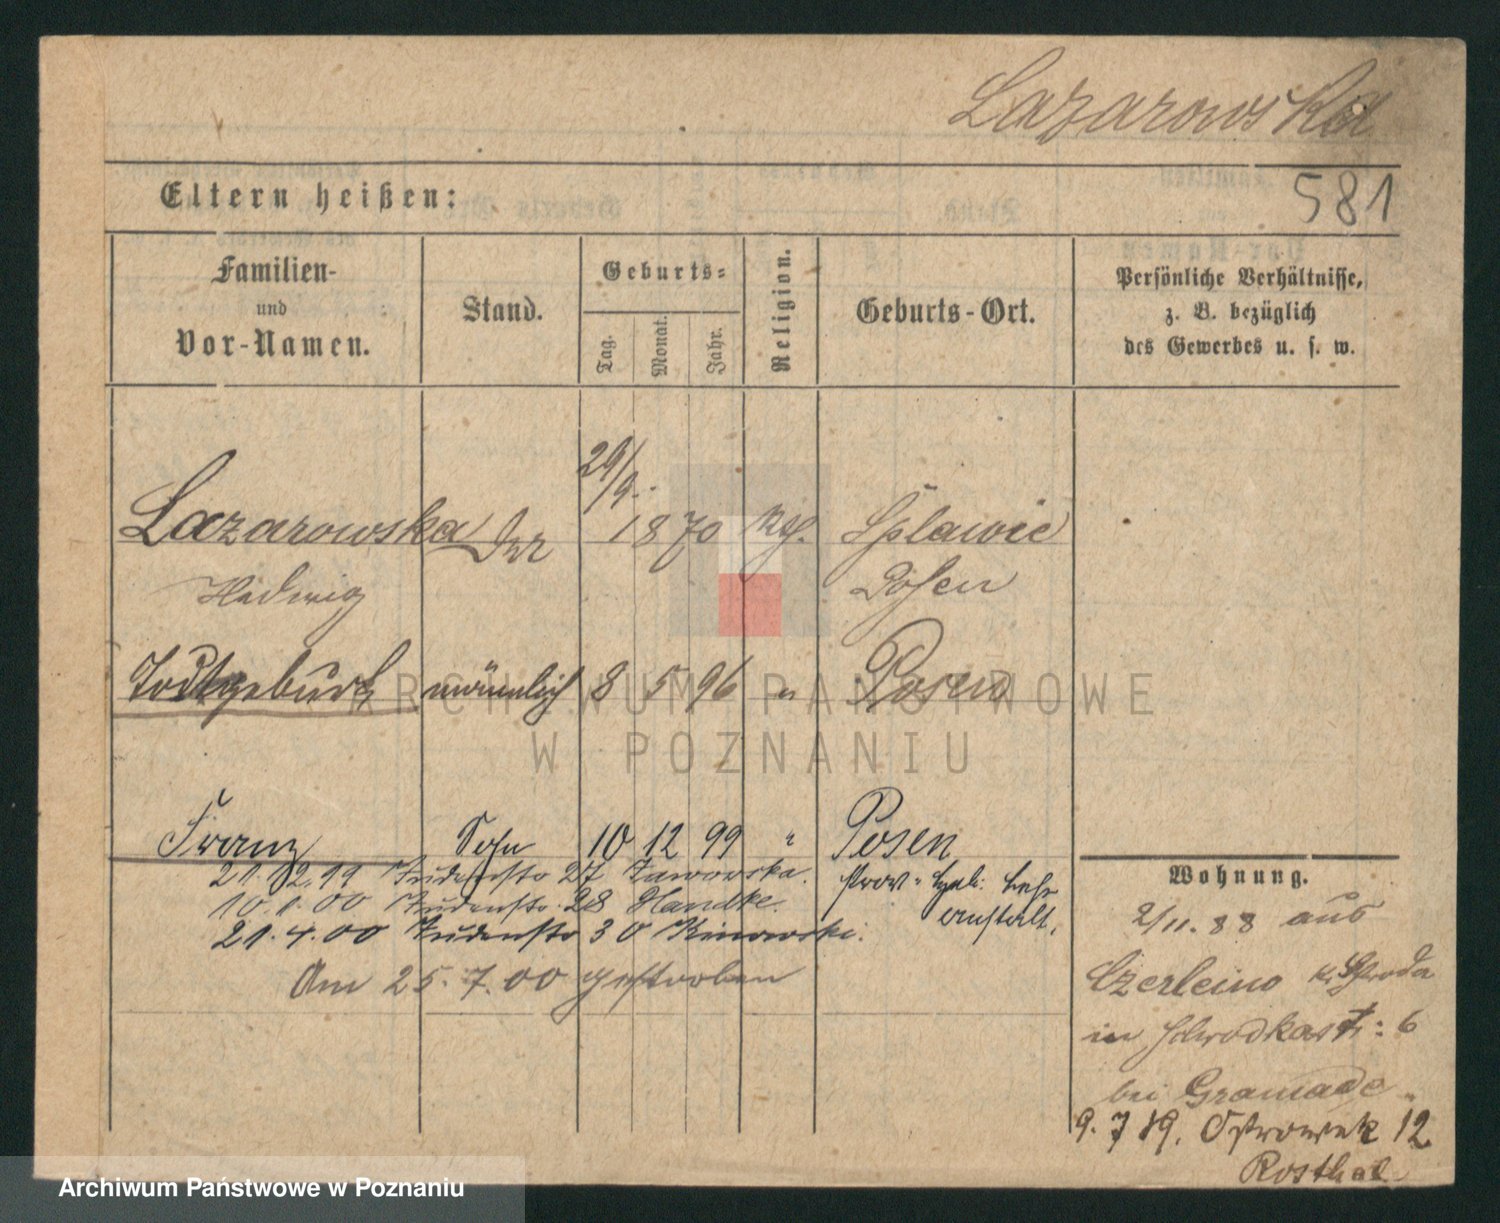 Lazarowska
581
Eltern heißen:
Familien-
und
Vor-Namen.
Stand.
Geburts-
Tag.
Monat.
Jahr.
Religion.
Geburts-Ort.
Persönliche Verhältnisse,
z. B. bezüglich
des Gewerbes u. s. w.
29/9.
Lazarowska 1870 Splawie
Hedwig Posen
Todtgeburt männlich 8 5 96 " Posen
Franz Sohn 10 12 99 " Posen
21.12.99 Judenstr 27 Jaworska.
10.1.00 Judenstr. 28 Handke.
21.4.00 Judenstr 30
Am 25.7.00 gestorben
Prov. Heb. Lehr
anstalt.
Wohnung.
2/11. 88 aus
Czerleino Kr. Schroda
in 6
bei Gramade
9. 7 89. Ostrowek 12
Rosthal
ARCHIWUM PAŃSTWOWE
W POZNANIU
Archiwum Państwowe w Poznaniu